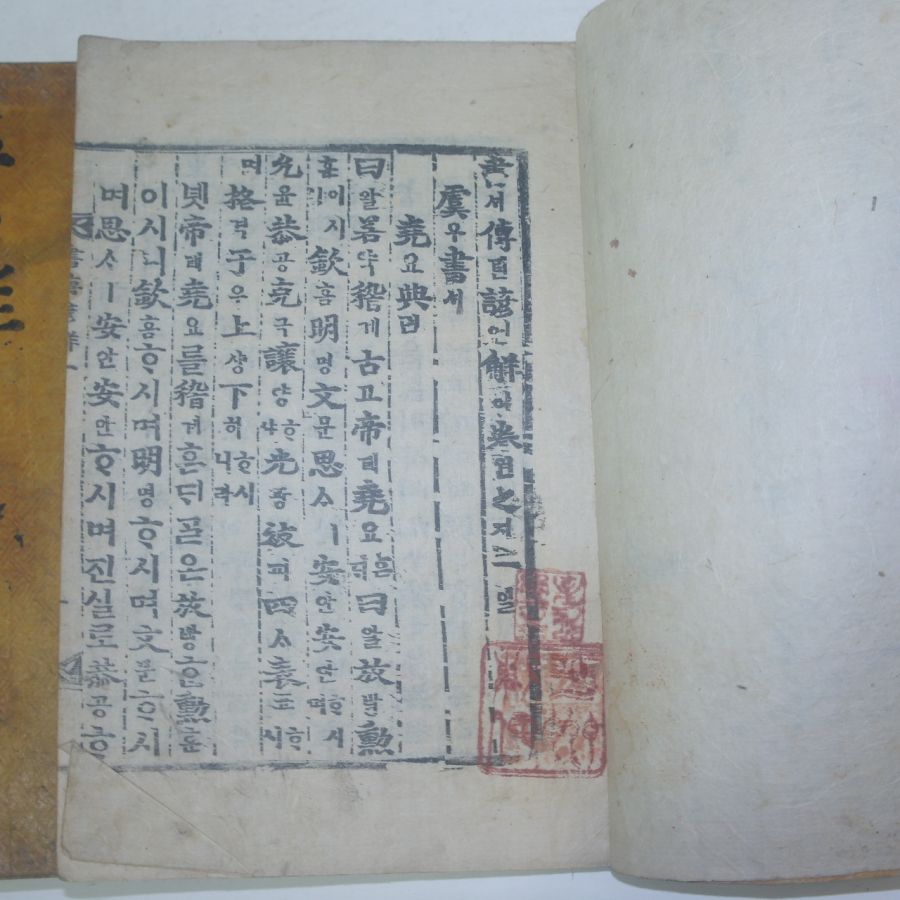 書셔傳뎐諺언解ᄒᆡ卷권之지一일
虞우書셔
堯요典뎐
曰왈若약稽계古고帝뎨堯요ᄒᆞᆫᄃᆡ曰왈放방勳
훈이시니欽흠明명文문思ᄉᆞㅣ安안安안ᄒᆞ시며
允윤恭공克극讓양ᄒᆞ샤光광被피四ᄉᆞ表표ᄒᆞ시
며格격于우上샹下하ᄒᆞ시니라
녯帝뎨堯요를稽계ᄒᆞᆫ딘ᄀᆞᆯ은放방ᄒᆞᆫ勳훈
이시니欽흠ᄒᆞ시며明명ᄒᆞ시며文문ᄒᆞ시
며思ᄉᆞㅣ安안安안ᄒᆞ시며진실로恭공ᄒᆞ